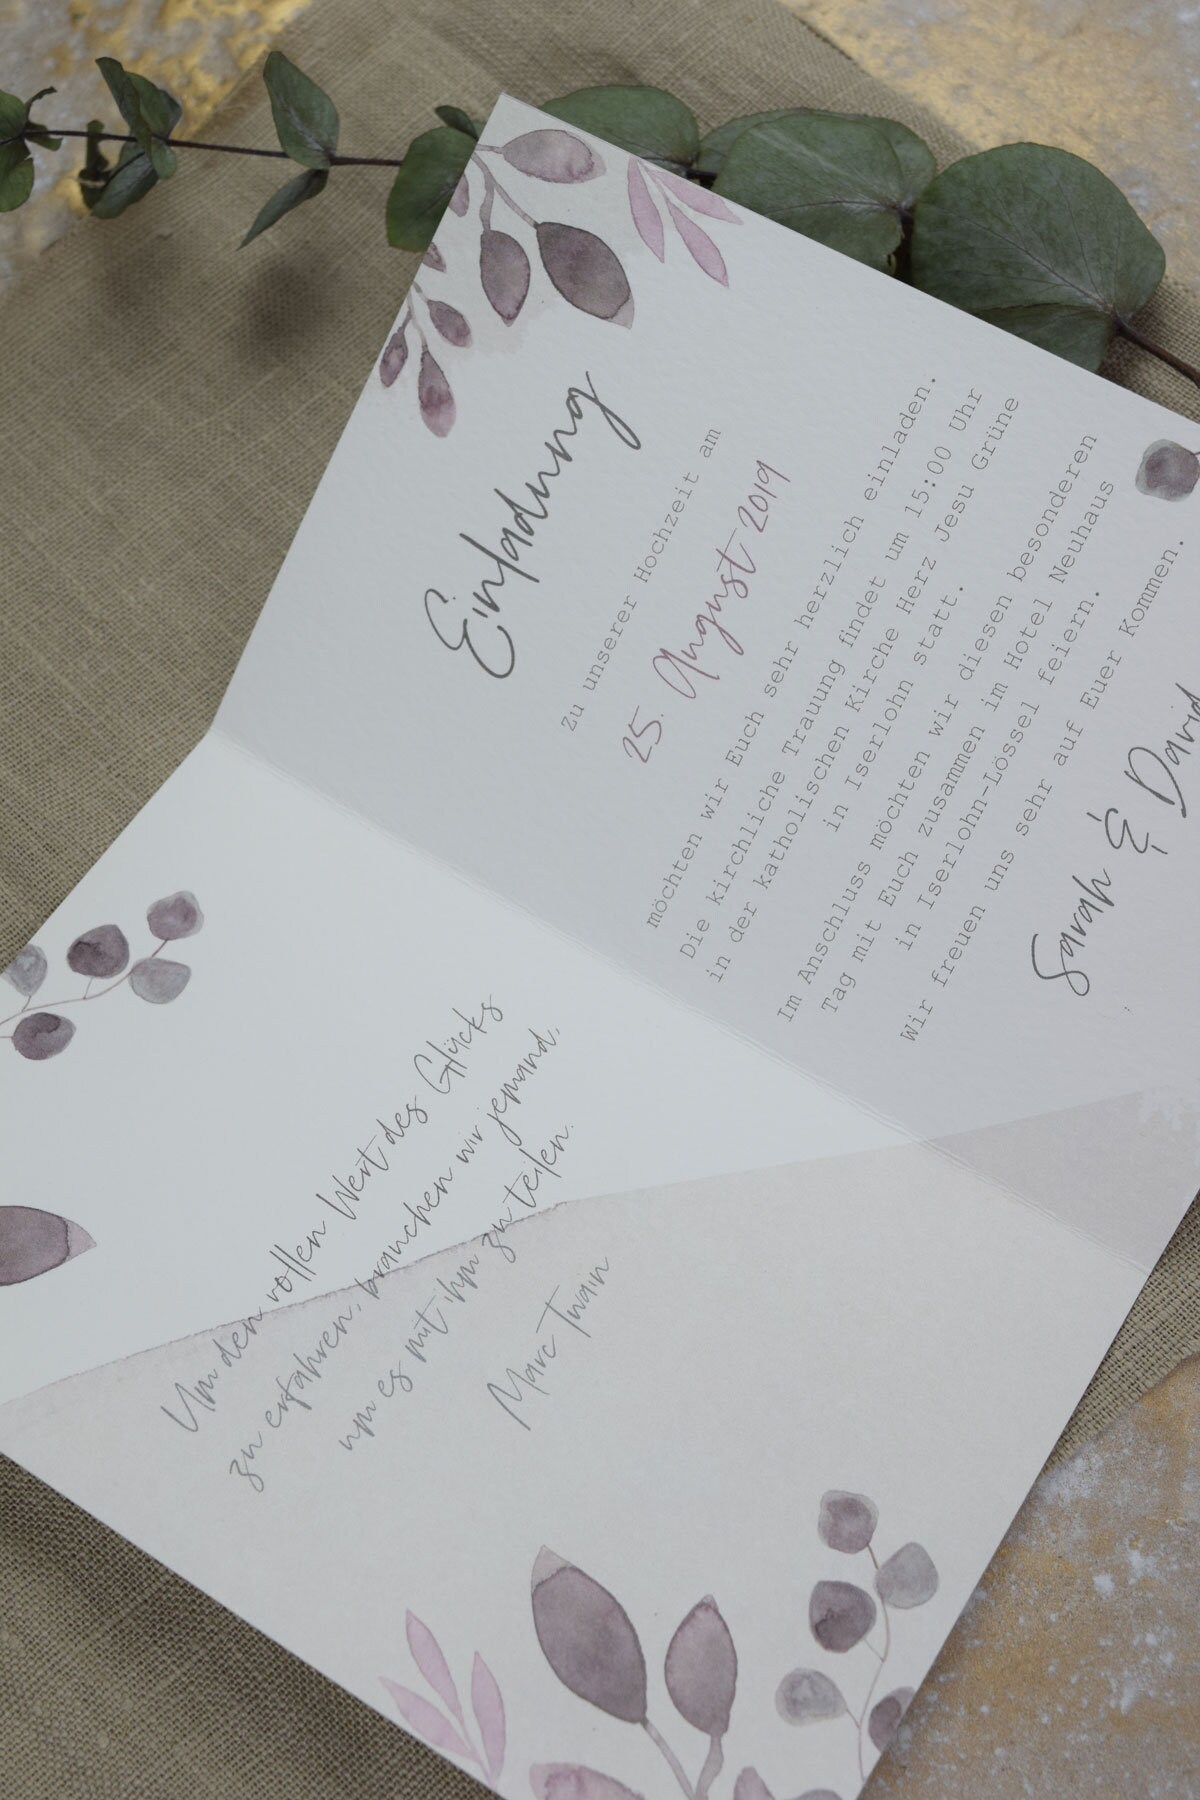 Einladung
Zu unserer Hochzeit am
25. August 2019
möchten wir Euch sehr herzlich einladen.
Die kirchliche Trauung findet um 15:00 Uhr
in der katholischen Kirche Herz Jesu Grüne
in Iserlohn statt.
Im Anschluss möchten wir diesen besonderen
Tag mit Euch zusammen im Hotel Neuhaus
in Iserlohn-Lössel feiern.
Wir freuen uns sehr auf Euer Kommen.
Sarah & David
Um den vollen Wert des Glücks
zu erfahren, brauchen wir jemand,
um es mit ihm zu teilen.
Marc Twain